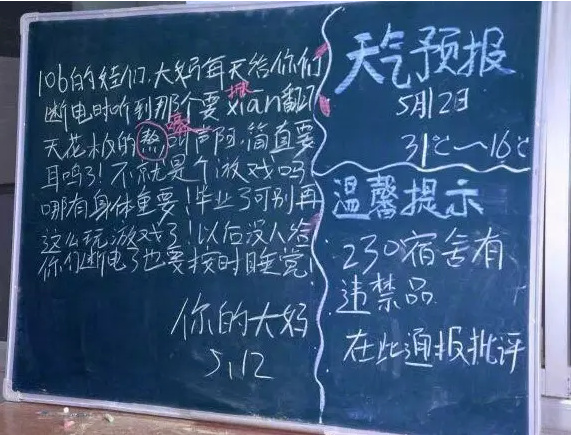 106的娃们,大妈每天给你们
断电时听到那个要xian翻了
掀
天花板的熬叫声阿,简直要
嚎
耳鸣了!不就是个游戏吗?
哪有身体重要!毕业了可别再
这么玩游戏了!以后没人给
你们断电了也要按时睡觉!
你的大妈
5.12
天气预报
5月12日
31℃~16℃
温馨提示
230宿舍有
违禁品
在此通报批评